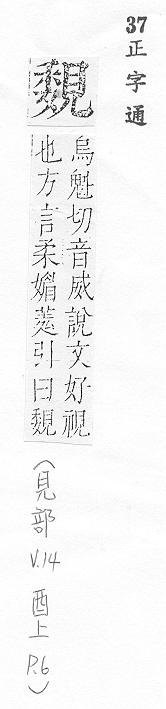 37正字通
覣
烏魁切音威說文好視
也方言柔媚引曰覣
(見部 V.14 酉上 P.6)